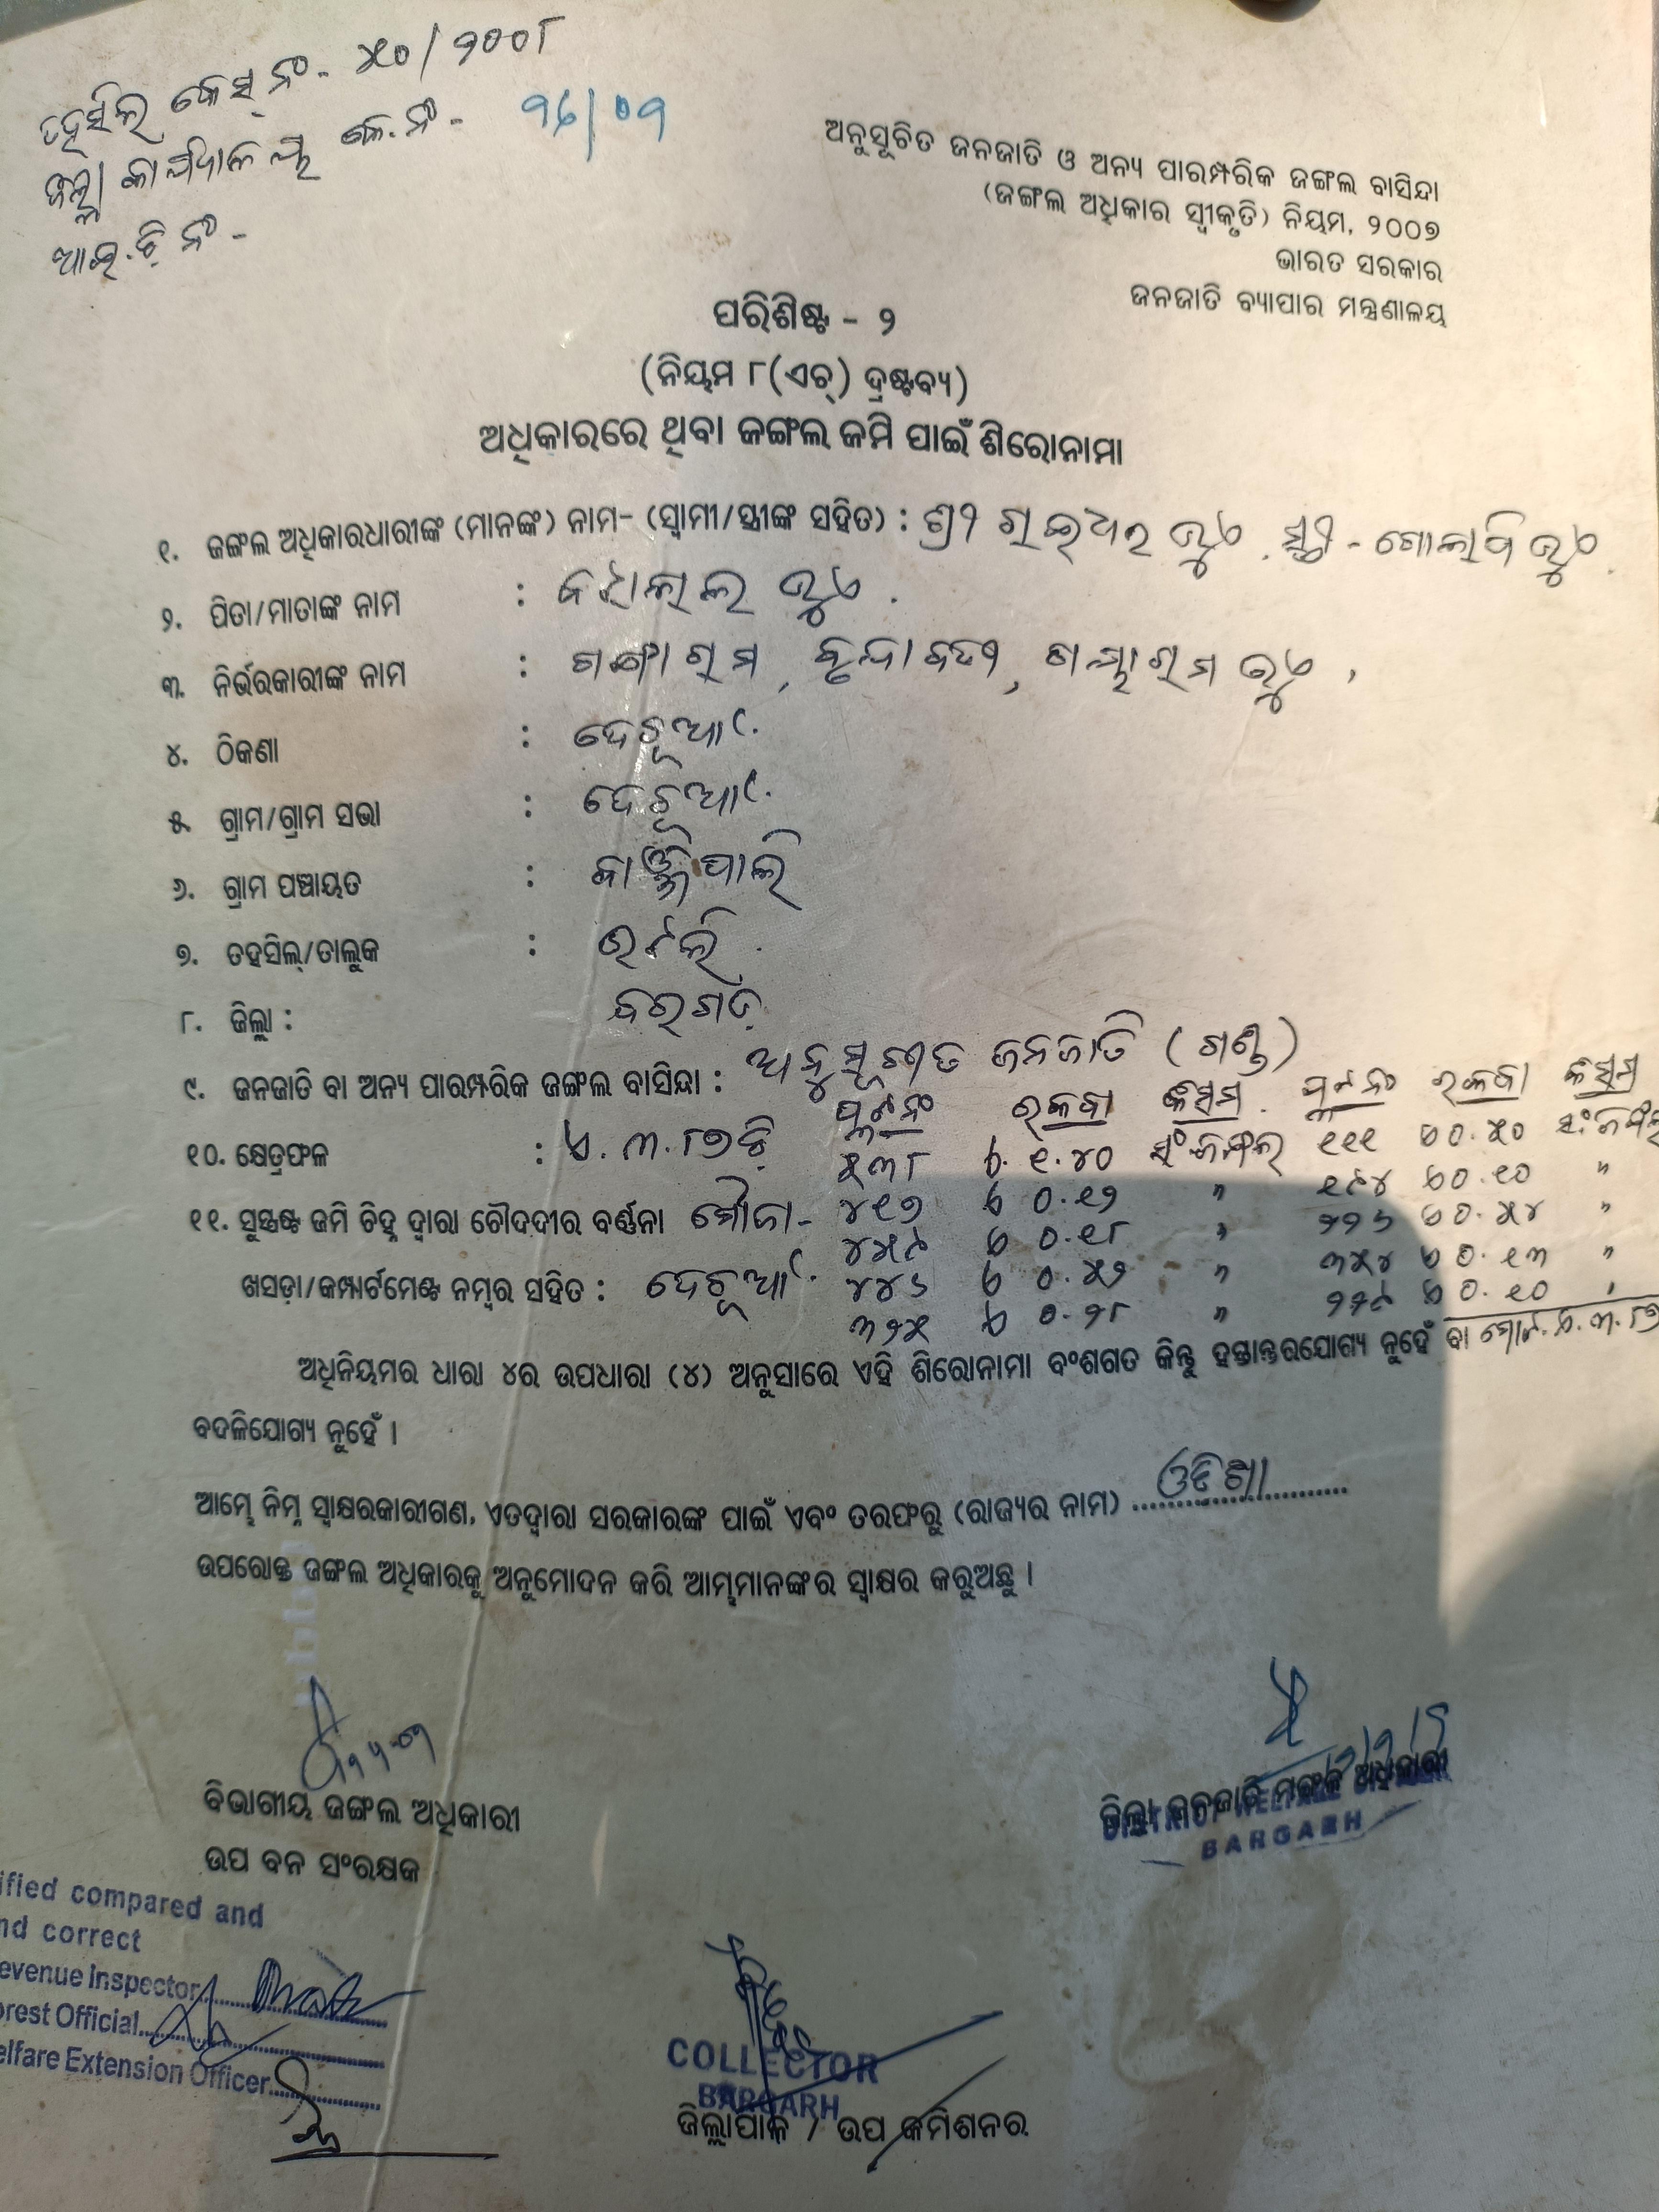 ତହସିଲ କେସ୍ ନଂ - ୪୦/୨୦୦୮
ଜିଲ୍ଲା କାର୍ଯ୍ୟାଳୟ କେ. ନଂ - ୨୬/୦୨
ଆଇ.ଡ଼ି ନଂ -
ଅନୁସୂଚିତ ଜନଜାତି ଓ ଅନ୍ୟ ପାରମ୍ପରିକ ଜଙ୍ଗଲ ବାସିନ୍ଦା
(ଜଙ୍ଗଲ ଅଧିକାର ସ୍ୱୀକୃତି) ନିୟମ, ୨୦୦୭
ଭାରତ ସରକାର
ଜନଜାତି ବ୍ୟାପାର ମନ୍ତ୍ରଣାଳୟ
ପରିଶିଷ୍ଟ - ୨
(ନିୟମ ୮(ଏଚ୍) ଦ୍ରଷ୍ଟବ୍ୟ)
ଅଧିକାରରେ ଥିବା ଜଙ୍ଗଲ ଜମି ପାଇଁ ଶିରୋନାମା
୧. ଜଙ୍ଗଲ ଅଧିକାରଧାରୀଙ୍କ (ମାନଙ୍କ) ନାମ- (ସ୍ୱାମୀ/ସ୍ତ୍ରୀଙ୍କ ସହିତ) : ଶ୍ରୀ ଭୁଏ . ସ୍ତ୍ରୀ - ଭୁଏ
୨. ପିତା/ମାତାଙ୍କ ନାମ : ଭୁଏ .
୩. ନିର୍ଭରକାରୀଙ୍କ ନାମ : ଗଙ୍ଗାରାମ , ବୃନ୍ଦାବତୀ, ଗୟାରାମ ଭୁଏ ,
୪. ଠିକଣା : ଦେଚୂଆଁ .
୫. ଗ୍ରାମ/ଗ୍ରାମ ସଭା : ଦେଚୂଆଁ .
୬. ଗ୍ରାମ ପଞ୍ଚାୟତ :
୭. ତହସିଲ୍/ତାଲୁକ : ଭଟଲି .
୮. ଜିଲ୍ଲା : ବରଗଡ଼
୯. ଜନଜାତି ବା ଅନ୍ୟ ପାରମ୍ପରିକ ଜଙ୍ଗଲ ବାସିନ୍ଦା : ଅନୁସୂଚୀତ ଜନଜାତି (ଗଣ୍ଡ)
ପ୍ଲଟ ନଂ ରକବା କିସମ . ପ୍ଲଟ ନଂ ରକବା କିସମ
୧୦. କ୍ଷେତ୍ରଫଳ : ଏ . ୩ . ୮୭ ଡ଼ି ୫୩୮ ଏ. ୧.୪୦ ସଂ. ଜଙ୍ଗଲ ୧୧୧ ଏ ୦.୫୦ ସଂ. ଜଙ୍ଗଲ
୧୧. ସୁସ୍ପଷ୍ଟ ଜମି ଚିହ୍ନ ଦ୍ୱାରା ଚୌଦଦୀର ବର୍ଣ୍ଣନା ମୌଜା - ୪୧୭ ଏ ୦.୧୨ " ୧୯୪ ଏ ୦.୧୦ "
୪୫୯ ଏ ୦.୧୮ " ୨୨୬ ଏ ୦.୫୪ "
ଖସଡ଼ା/କମ୍ପାର୍ଟମେଣ୍ଟ ନମ୍ବର ସହିତ : ଦେଚୂଆଁ . ୪୪୬ ଏ ୦.୫୨ " ୩୫୪ ଏ ୦.୧୩ "
୩୨୫ ଏ ୦.୨୮ " ୨୨୯ ଏ ୦.୧୦ "
ମୋଟ. ଏ. ୩.୮୭
ଅଧିନିୟମର ଧାରା ୪ର ଉପଧାରା (୪) ଅନୁସାରେ ଏହି ଶିରୋନାମା ବଂଶଗତ କିନ୍ତୁ ହସ୍ତାନ୍ତରଯୋଗ୍ୟ ନୁହେଁ ବା
ବଦଳିଯୋଗ୍ୟ ନୁହେଁ ।
ଆମ୍ଭେ ନିମ୍ନ ସ୍ୱାକ୍ଷରକାରୀଗଣ, ଏତଦ୍ୱାରା ସରକାରଙ୍କ ପାଇଁ ଏବଂ ତରଫରୁ (ରାଜ୍ୟର ନାମ) ଓଡିଶା
ଉପରୋକ୍ତ ଜଙ୍ଗଲ ଅଧିକାରକୁ ଅନୁମୋଦନ କରି ଆମ୍ଭମାନଙ୍କର ସ୍ୱାକ୍ଷର କରୁଅଛୁ ।
ବିଭାଗୀୟ ଜଙ୍ଗଲ ଅଧିକାରୀ
ଉପ ବନ ସଂରକ୍ଷକ
ଜିଲ୍ଲା ଜନଜାତି ମଙ୍ଗଳ ଅଧିକାରୀ
DISTRICT WELFARE OFFICER
BARGARH
ified compared and
nd correct
evenue Inspector
orest Official
elfare Extension Officer
COLLECTOR
BARGARH
ଜିଲ୍ଲାପାଳ / ଉପ କମିଶନର